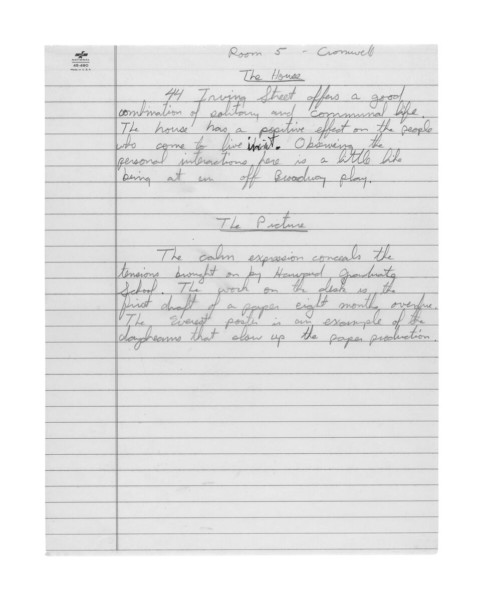 45-680
Room 5 - Cromwell
The House
44 Irving Street offers a good
combination of solitary and communal life.
The house has a positive effect on the people
who come to live in it. Observing the
personal interactions here is a little like
being at an off Broadway play.
The Picture
The calm expression conceals the
tensions brought on by Harvard Graduate
School. The work on the desk is the
first draft of a paper eight months overdue.
The Everest poster is an example of the
daydreams that slow up the paper production.